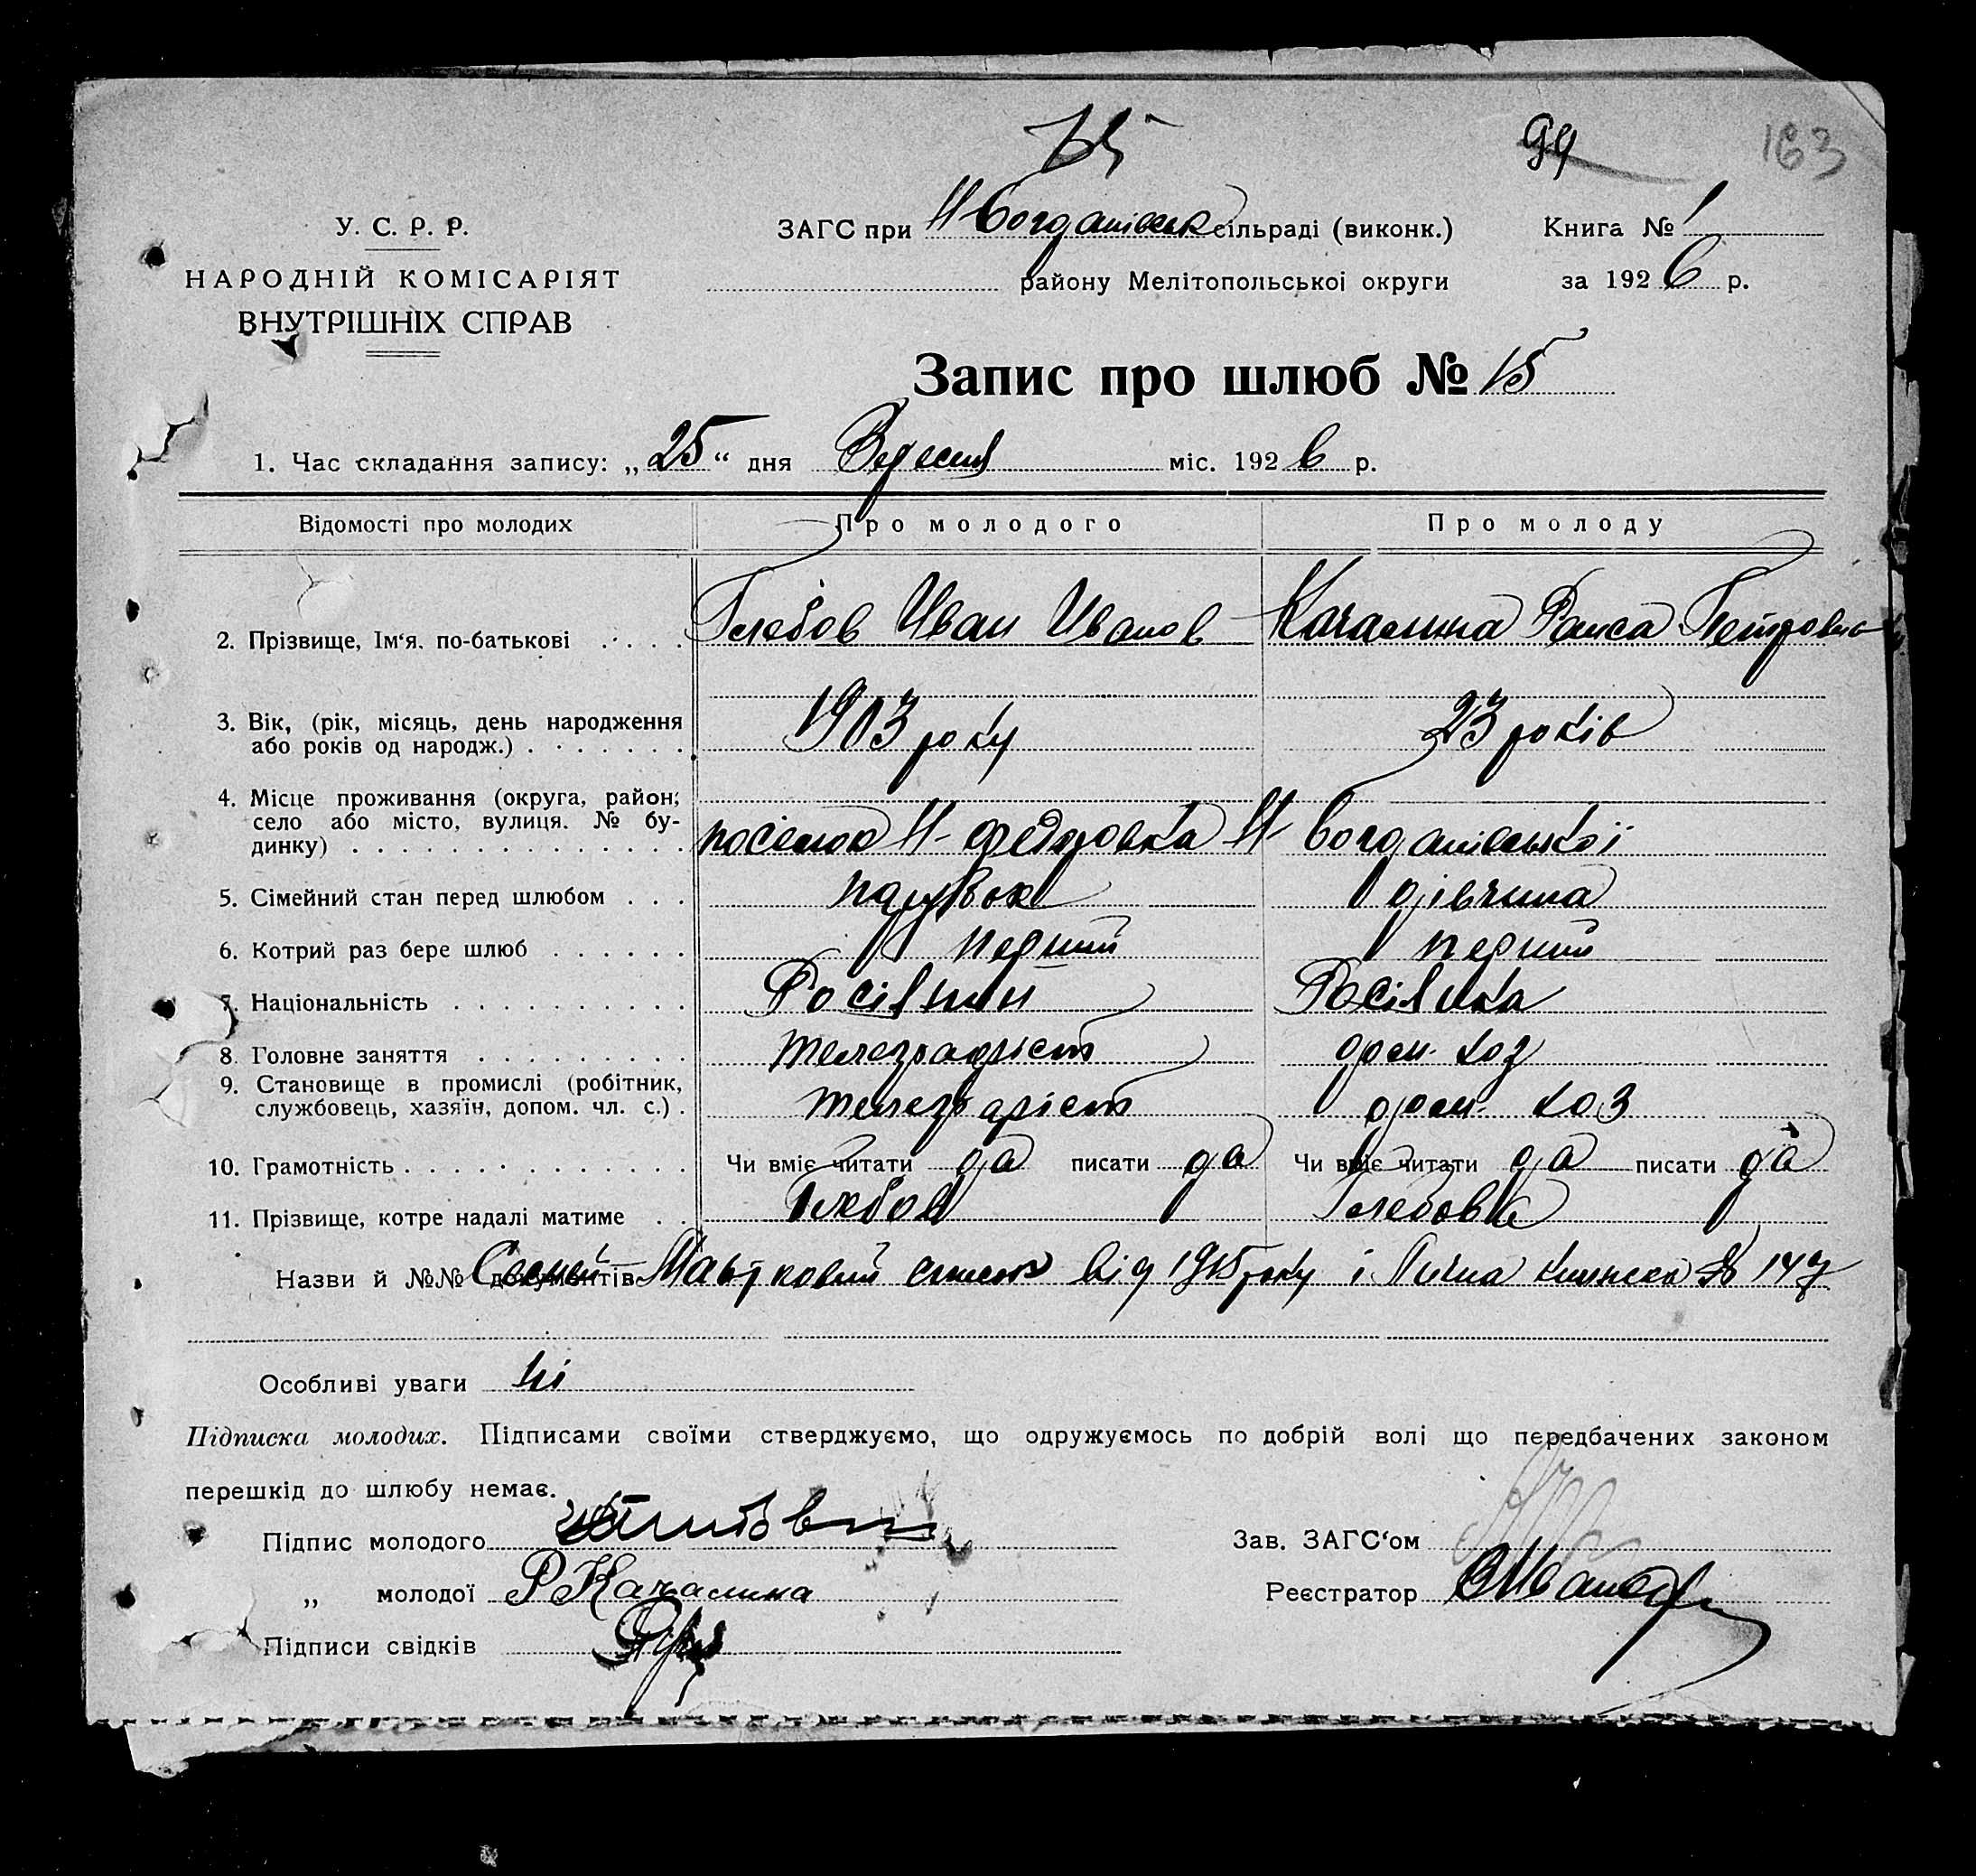 99 163
У. С. Р. Р.
НАРОДНІЙ КОМІСАРІЯТ
ВНУТРІШНІХ СПРАВ
ЗАГС при Н Богданівськ сільраді (виконк.)
району Мелітопольської округи
Книга № 1
за 1926 р.
Запис про шлюб № 15
1. Час складання запису: „25“ дня Вересня міс. 1926 р.
Відомості про молодих Про молодого Про молоду
2. Прізвище, Ім‘я, по-батькові Глебов Иван Иванов Качалина Раиса Петровна
3. Вік, (рік, місяць, день народження
або років од народж.) 1903 року 23 років
4. Місце проживання (округа, район;
село або місто, вулиця. № бу-
динку) посёлок Н-Федоровка Н-Богданівської
5. Сімейний стан перед шлюбом парубок дівчина
6. Котрий раз бере шлюб перший перший
7. Національність Росіянин Росіянка
8. Головне заняття телеграфіст дом. хоз
9. Становище в промислі (робітник,
службовець, хазяїн, допом. чл. с.) телеграфіст дом. хоз
10. Грамотність Чи вміє читати да писати да Чи вміє читати да писати да
11. Прізвище, котре надалі матиме Глебов Глебова
Назви й №№ документів від 1915 року і Лична книжка № 147
Особливі уваги ні
Підписка молодих. Підписами своїми стверджуємо, що одружуємось по добрій волі що передбачених законом
перешкід до шлюбу немає.
Підпис молодого
„ молодої Р Качалина
Підписи свідків
Зав. ЗАГС‘ом
Реєстратор